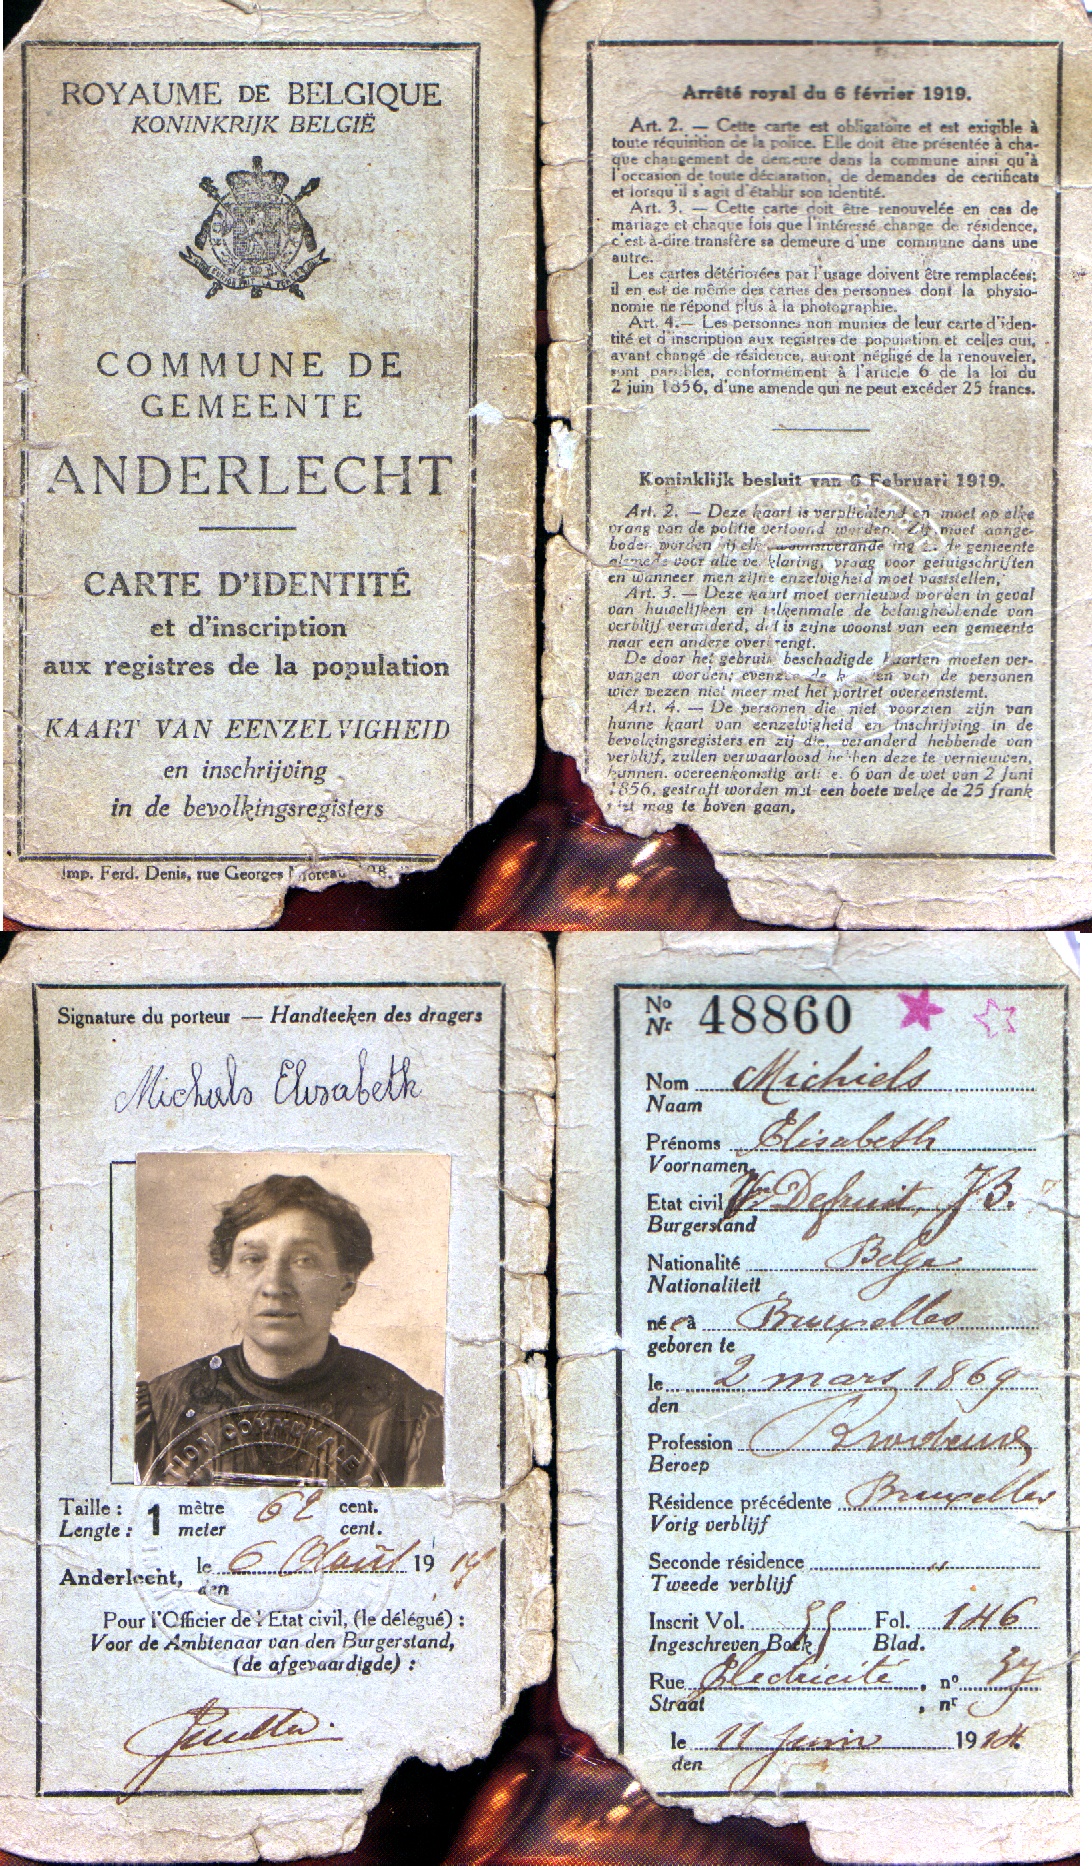 ROYAUME DE BELGIQUE
KONINKRIJK BELGIË
COMMUNE DE
GEMEENTE
ANDERLECHT
CARTE D'IDENTITÉ
et d'inscription
aux registres de la population
KAART VAN EENZELVIGHEID
en inschrijving
in de bevolkingsregisters
Imp. Ferd. Denis, rue Georges Moreau
Arrêté royal du 6 février 1919.
Art. 2. — Cette carte est obligatoire et est exigible à
toute réquisition de la police. Elle doit être présentée à cha-
que changement de demeure dans la commune ainsi qu'à
l'occasion de toute déclaration, de demandes de certificats
et lorsqu'il s'agit d'établir son identité.
Art. 3. — Cette carte doit être renouvelée en cas de
mariage et chaque fois que l'intéressé change de résidence,
c'est-à-dire transfère sa demeure d'une commune dans une
autre.
Les cartes détériorées par l'usage doivent être remplacées;
il en est de même des cartes des personnes dont la physio-
nomie ne répond plus à la photographie.
Art. 4.— Les personnes non munies de leur carte d'iden-
tité et d'inscription aux registres de population et celles qui,
ayant changé de résidence, auront négligé de la renouveler,
sont passibles, conformément à l'article 6 de la loi du
2 juin 1856, d'une amende qui ne peut excéder 25 francs.
Koninklijk besluit van 6 Februari 1919.
Art. 2. — Deze kaart is verplichtend en moet op elke
vraag van de politie vertoond worden. Zij moet aange-
boden worden bij elke woonstverandering in de gemeente
alsmede voor alle verklaring, vraag voor getuigschriften
en wanneer men zijne enzelvigheid moet vaststellen,
Art. 3. — Deze kaart moet vernieuwd worden in geval
van huwelijken en telkenmale de belanghebbende van
verblijf veranderd, dat is zijne woonst van een gemeente
naar een andere overbrengt.
De door het gebruik beschadigde kaarten moeten ver-
vangen worden; evenzo de kaarten van de personen
wier wezen niet meer met het portret overeenstemt.
Art. 4. — De personen die niet voorzien zijn van
hunne kaart van eenzelvigheid en inschrijving in de
bevolkingsregisters en zij die, veranderd hebbende van
verblijf, zullen verwaarloosd hebben deze te vernieuwen,
kunnen, overeenkomstig artikel 6 van de wet van 2 Juni
1856, gestraft worden met een boete welke de 25 frank
niet mag te boven gaan,
Signature du porteur — Handteeken des dragers
Michiels Elisabeth
Taille : 1 mètre 62 cent.
Lengte : meter cent.
Anderlecht, le 6 Août 19 19
den
Pour l'Officier de l'Etat civil, (le délégué) :
Voor de Ambtenaar van den Burgerstand,
(de afgevaardigde) :
No 48860
Nr
Nom Michiels
Naam
Prénoms Elisabeth
Voornamen
Etat civil Vve Defruit, J B.
Burgerstand
Nationalité Belge
Nationaliteit
née à Bruxelles
geboren te
le 2 mars 1869
den
Profession Brodeuse
Beroep
Résidence précédente Bruxelles
Vorig verblijf
Seconde résidence "
Tweede verblijf
Inscrit Vol. 55 Fol. 146
Ingeschreven Boek Blad.
Rue Electricité, no 37
Straat , nr
le 11 Juin 19 14.
den